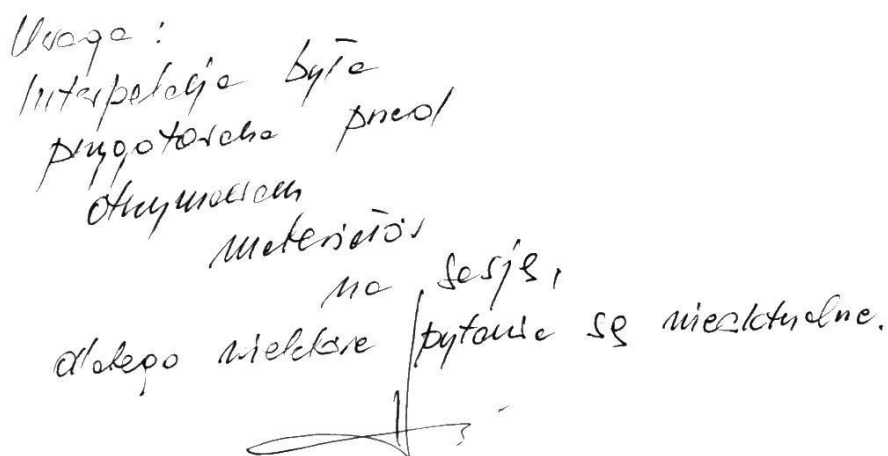 Uwaga:
Interpelacja była
przygotowana przed
otrzymaniem
materiałów
na sesję,
dlatego niektóre pytania są nieaktualne.